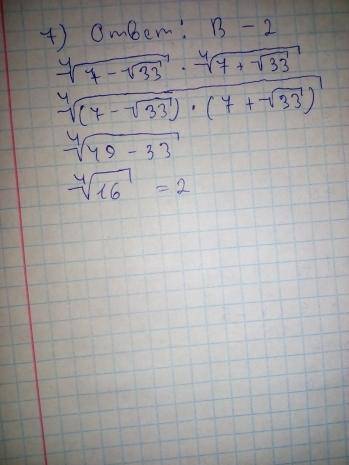 7) Ответ: В - 2
∜(7 - √33) · ∜(7 + √33)
∜((7 - √33) · (7 + √33))
∜(49 - 33)
∜16 = 2